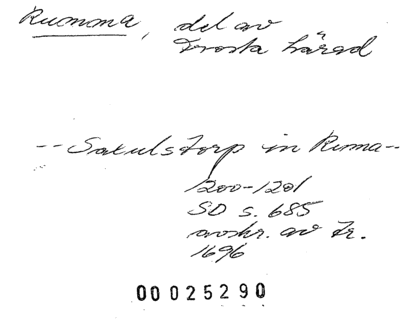 Rumma, del av
Trosta härad
-- Saxulstorp in Ruma --
1200-1201
SD s. 685
avskr. av fr.
1696
00025290